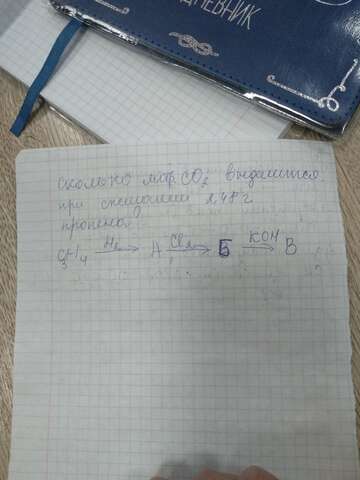 ДНЕВНИК
сколько мол. CO₂ выделится
при сжигании 2,48 г
пропена
C₃H₄ H₂ → A Cl₂ → Б KOH → В